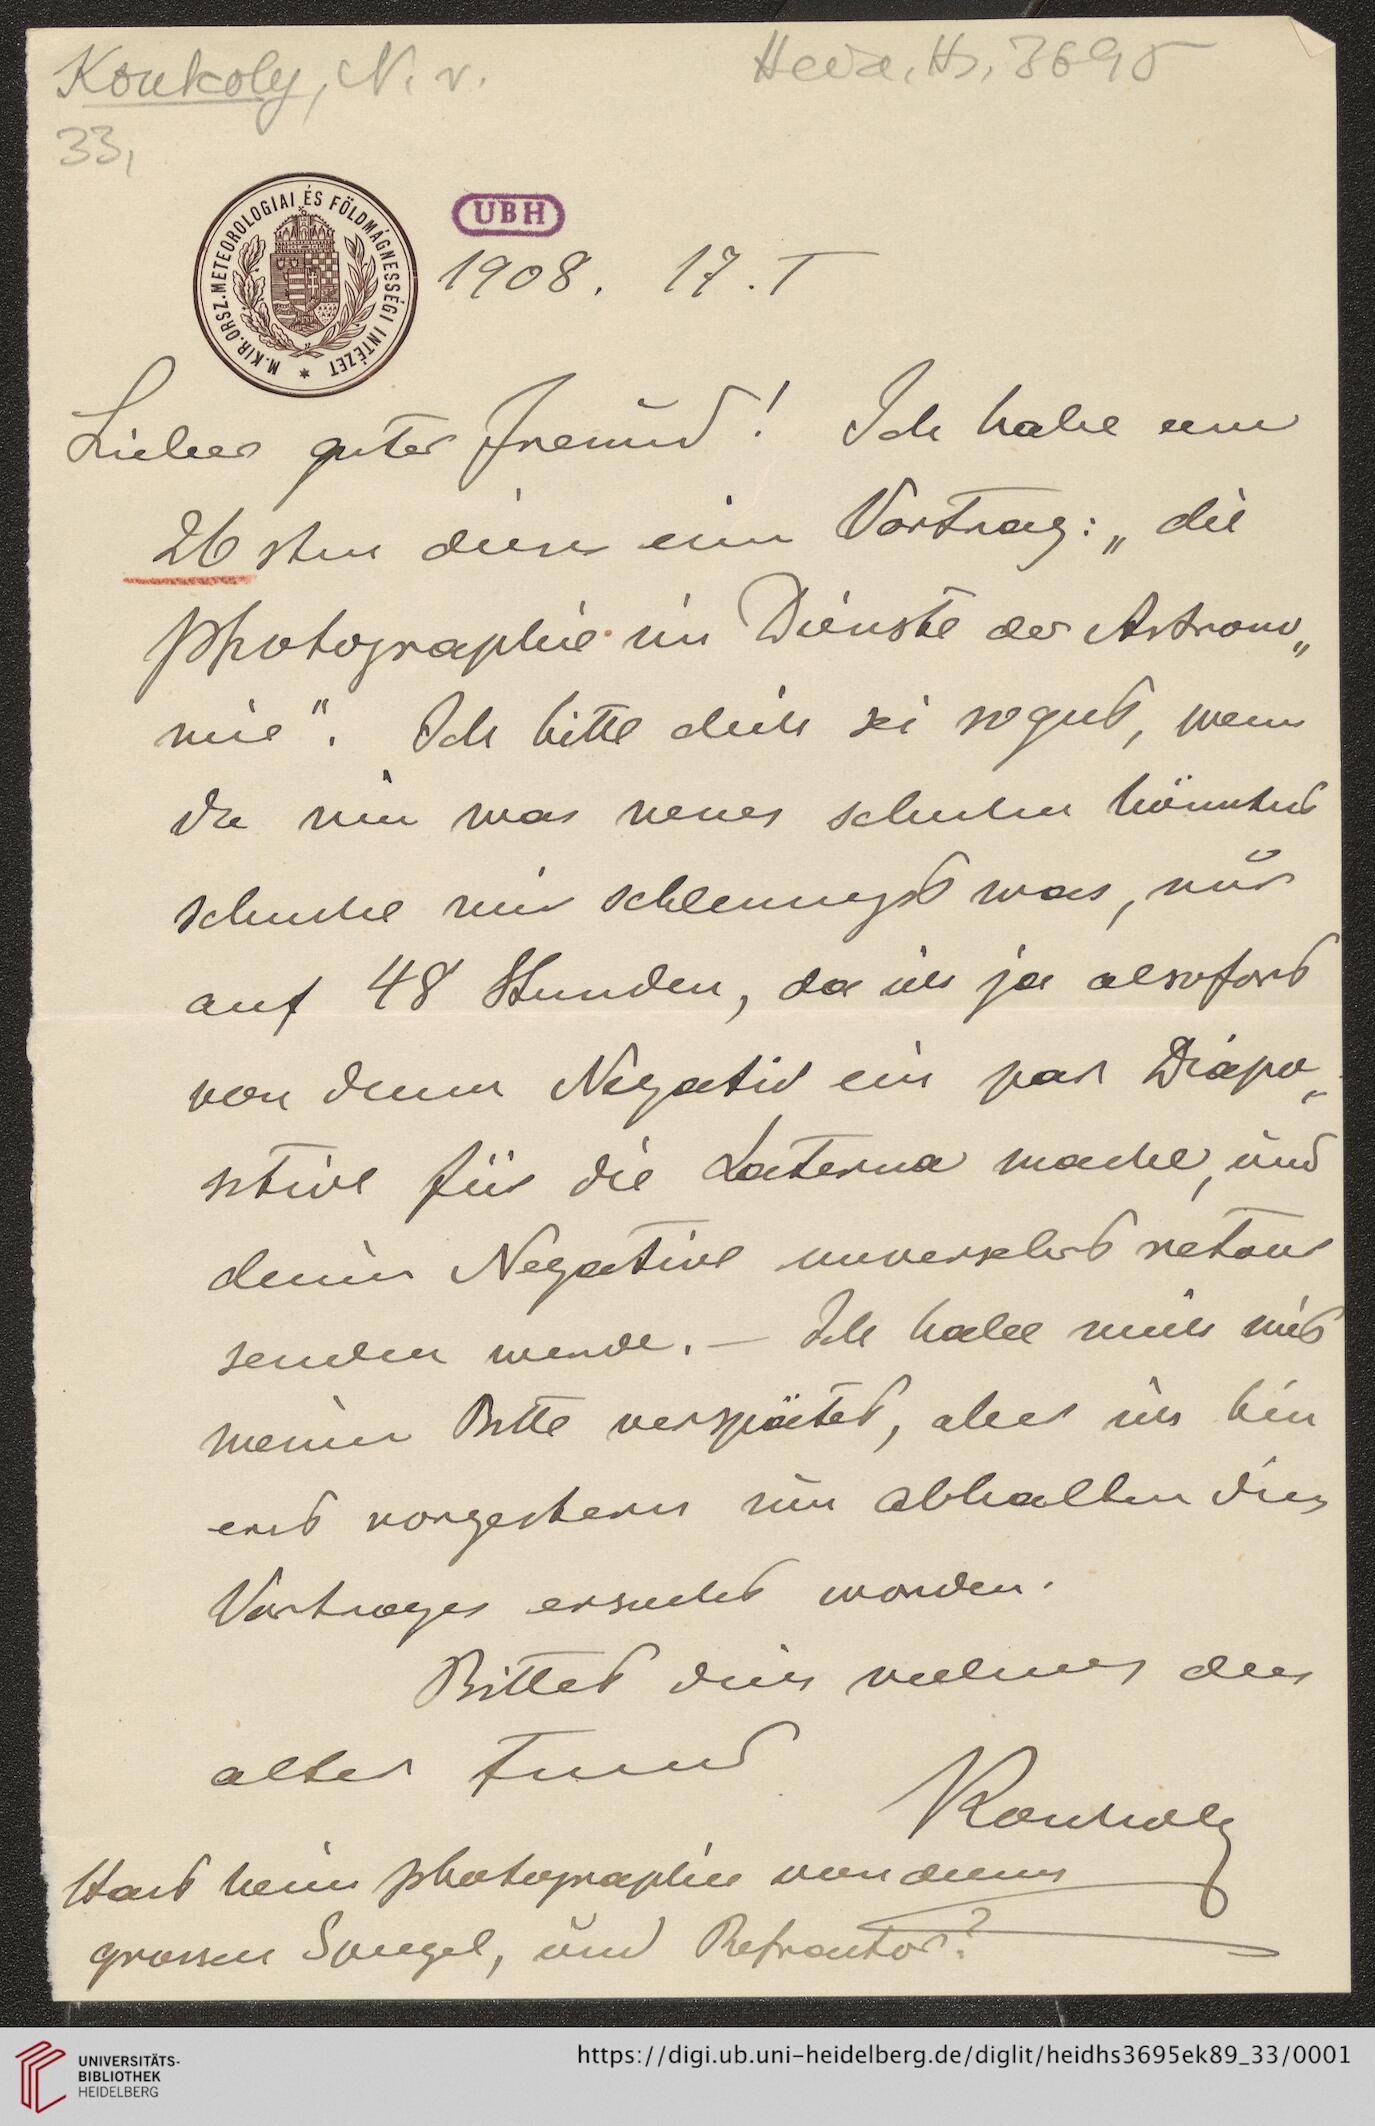 Konkoly, N. v.
Heid. Hs. 3695
33,
M. KIR. ORSZ. METEOROLOGIAI ÉS FÖLDMÁGNESSÉGI INTÉZET
UBH
1908. 17. I
Lieber guter Freund! Ich habe am
26sten dieses einen Vortrag: „die
Photographie im Dienste der Astrono„
mie“. Ich bitte dich sei so gut, wenn
du mir was neues schicken könntest
schicke mir schleunigst was, nur
auf 48 Stunden, da ich ja alsofort
von deinen Negativ ein par Diapo„
sitive für die Laterna mache, und
deine Negative unversehrt retour
senden werde. — Ich habe mich mit
meiner Bitte verspätet, aber ich bin
erst vorgestern um abhalten dies
Vortrages ersucht worden.
Bittet dich vielmals dein
alter Freund
Konkoly
Hast keine Photographie von deinem
grossen Spiegel, und Refractor?
UNIVERSITÄTS-
BIBLIOTHEK
HEIDELBERG
https://digi.ub.uni-heidelberg.de/diglit/heidhs3695ek89_33/0001